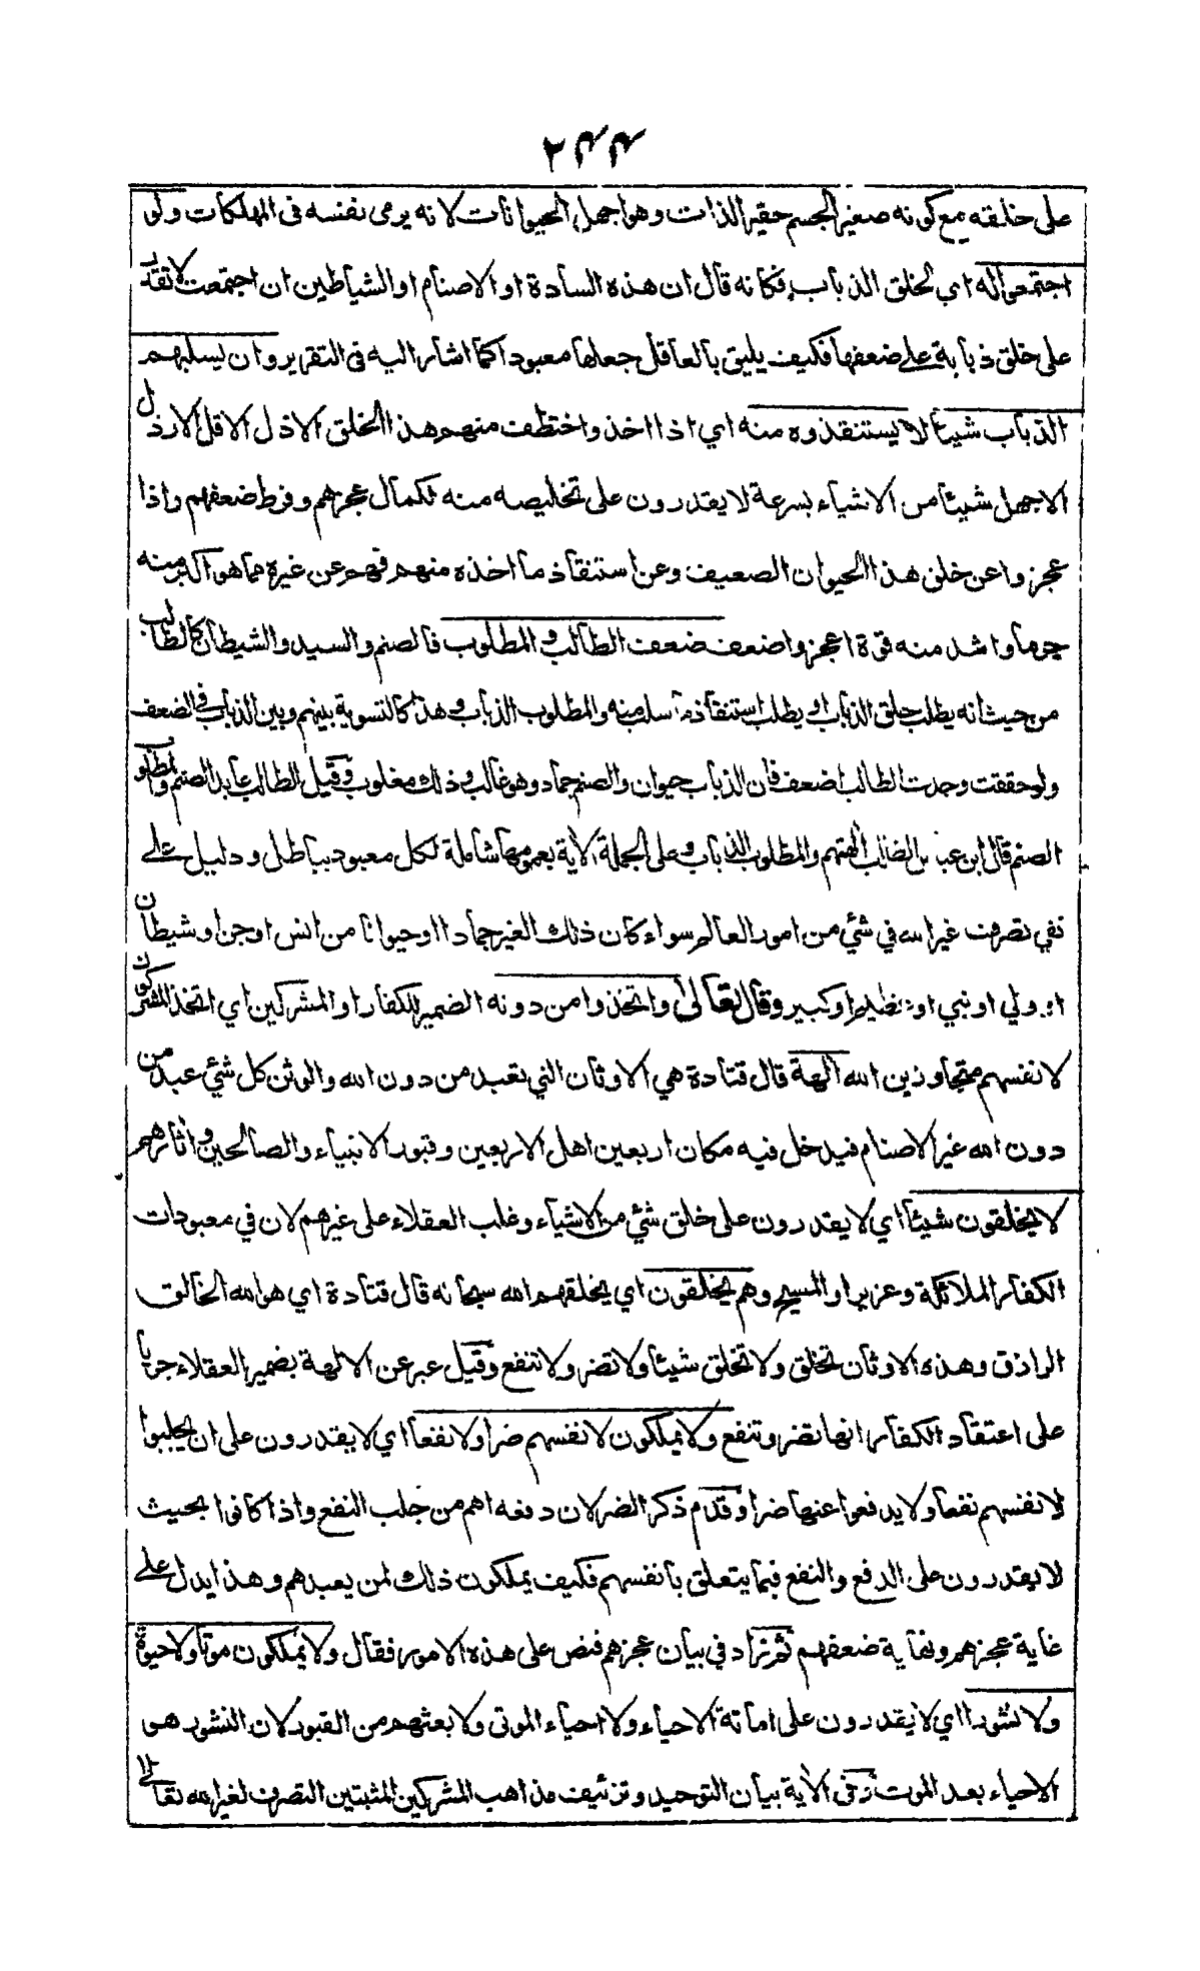 ٢٤٤
على خلقه مع كونه صغير الجسم حقير الذات وهو اجهل الحيوانات لانه يرمى نفسه فى المهلكات ولو
اجتمعوا له اي لخلق الذباب فكانه قال ان هذه السادة او الاصنام او الشياطين ان اجتمعت لا تقدر
على خلق ذبابة على ضعفها فكيف يليق بالعاقل جعلها معبودا كما اشار اليه فى التقرير وان يسلبهم
الذباب شيئا لا يستنقذوه منه اي اذا اخذ واختطف منهم هذا الخلق الاذل الاقل الارذل
الاجهل شيئا من الاشياء بسرعة لا يقدرون على تخليصه منه لكمال عجزهم وفرط ضعفهم واذا
عجزوا عن خلق هذا الحيوان الضعيف وعن استنقاذ ما اخذه منهم فهم عن غيره مما هو اكبر منه
جرما واشد منه قوة اعجز واضعف ضعف الطالب والمطلوب فالصنم والسيد والشيطان كالطالب
من حيث انه يطلب خلق الذباب او يطلب استنقاذ ما سلب منه والمطلوب الذباب وهذا كالتسوية بينهم وبين الذباب فى الضعف
ولو حققت وجدت الطالب اضعف فان الذباب حيوان والصنم جماد وهو غالب وذلك مغلوب وقيل الطالب عابد الصنم والمطلوب
الصنم قال ابن عباس الطالب الهتهم والمطلوب الذباب وعلى الجملة الاية بعمومها شاملة لكل معبود بباطل ودليل على
نفي تصرف غير الله في شئ من امور العالم سواء كان ذلك الغير جمادا او حيوانا من انس او جن او شيطان
او ولي او نبي او عظيم او كبير وقال تعالى واتخذوا من دونه الضمير للكفار او المشركين اي اتخذ المشركون
لانفسهم متجاوزين الله الهة قال قتادة هي الاوثان التي تعبد من دون الله والوثن كل شئ عبد من
دون الله غير الاصنام فيدخل فيه مكان اربعين اهل الاربعين وقبور الانبياء والصالحين واثارهم
لا يخلقون شيئا اي لا يقدرون على خلق شئ من الاشياء وغلب العقلاء على غيرهم لان في معبودات
الكفار الملائكة وعزير او المسيح وهم يخلقون اي يخلقهم الله سبحانه قال قتادة اي هو الله الخالق
الرازق وهذه الاوثان تخلق ولا تخلق شيئا ولا تضر ولا تنفع وقيل عبر عن الالهة بضمير العقلاء جريا
على اعتقاد الكفار انها تضر وتنفع ولا يملكون لانفسهم ضرا ولا نفعا اي لا يقدرون على ان يجلبوا
لانفسهم نفعا ولا يدفعوا عنها ضرا وقدم ذكر الضر لان دفعه اهم من جلب النفع واذا كانوا بحيث
لا يقدرون على الدفع والنفع فيما يتعلق بانفسهم فكيف يملكون ذلك لمن يعبدهم وهذا يدل على
غاية عجزهم ونهاية ضعفهم ثم زاد في بيان عجزهم فنص على هذه الامور فقال ولا يملكون موتا ولا حيوة
ولا نشورا اي لا يقدرون على اماتة الاحياء ولا احياء الموتى ولا بعثهم من القبور لان النشور هو
الاحياء بعد الموت وفى الاية بيان التوحيد وتزئيف مذاهب المشركين المثبتين التصرف لغير الله تعالى